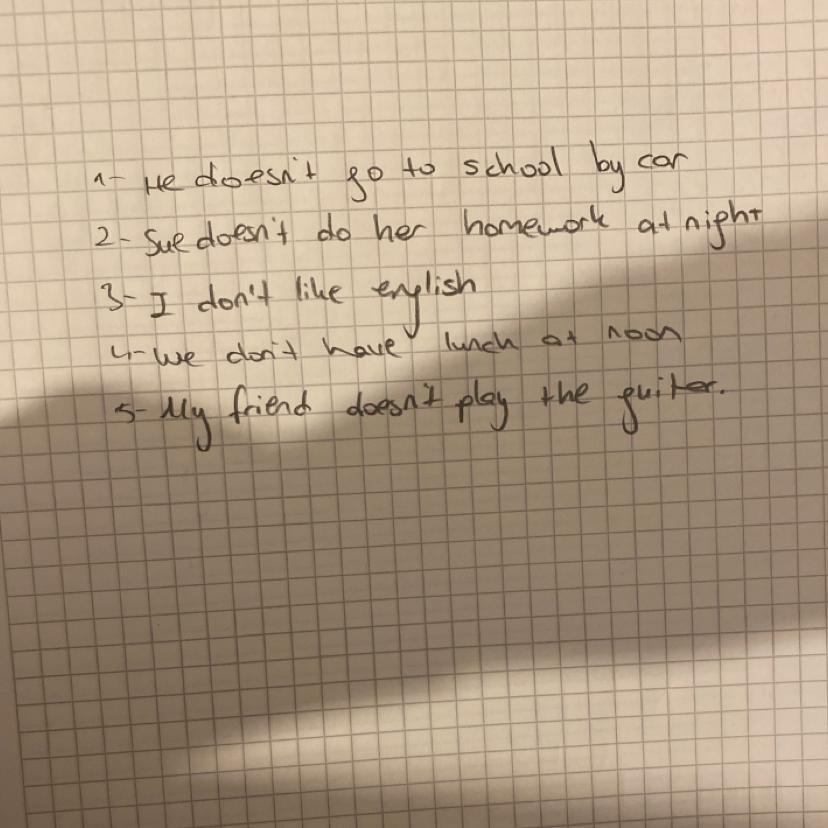 1- He doesn't go to school by car
2- Sue doesn't do her homework at night
3- I don't like english
4- We don't have lunch at noon
5- My friend doesn't play the guitar.